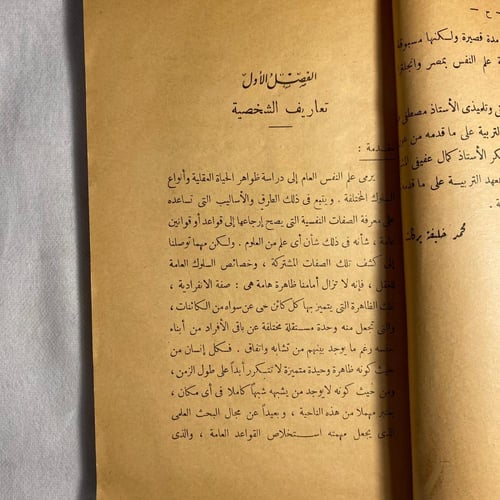 ـ ح ـ
مدة قصيرة ولكنها مسبوقة
علم النفس بمصر وانجلترا
وتلميذى الأستاذ مصطفى
التربية على ما قدمه من
الأستاذ كمال عفيفى
معهد التربية على ما قدمه
محمد خليفة بركات
الفصل الأول
تعاريف الشخصية
مقدمة :
يرمى علم النفس العام إلى دراسة ظواهر الحياة العقلية وأنواع
السلوك المختلفة . ويتبع فى ذلك الطرق والأساليب التى تساعده
على معرفة الصفات النفسية التى يصح إرجاعها إلى قواعد أو قوانين
عامة ، شأنه فى ذلك شأن أى علم من العلوم . ولكن مهما توصلنا
إلى كشف تلك الصفات المشتركة ، وخصائص السلوك العامة
للعقل ، فإنه لا تزال أمامنا ظاهرة هامة هى : صفة الانفرادية ،
تلك الظاهرة التى يتميز بها كل كائن حى عن سواه من الكائنات ،
والتى تجعل منه وحدة مستقلة مختلفة عن باقى الأفراد من أبناء
جنسه رغم ما يوجد بينهم من تشابه واتفاق . فكل إنسان من
حيث كونه ظاهرة وحيدة متميزة لا تتكرر أبداً على طول الزمن ،
ومن حيث كونه لا يوجد من يشبهه شبهاً كاملا فى أى مكان ،
يعتبر مهملا من هذه الناحية ، وبعيداً عن مجال البحث العلمى
الذى يجعل مهمته استخلاص القواعد العامة ، والذى